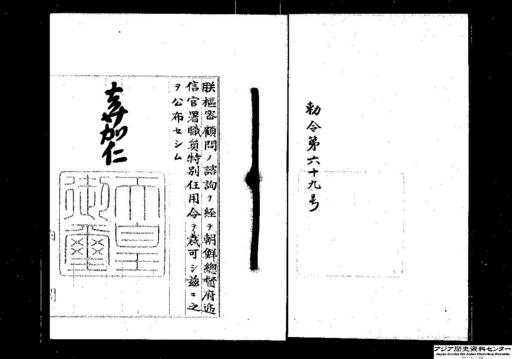 勅令第六十九号
朕枢密顧問ノ諮詢ヲ経テ朝鮮総督府逓
信官署職員特別任用令ヲ裁可シ茲ニ之
ヲ公布セシム
嘉仁
天皇
御璽
アジア歴史資料センター
Japan Center for Asian Historical Records